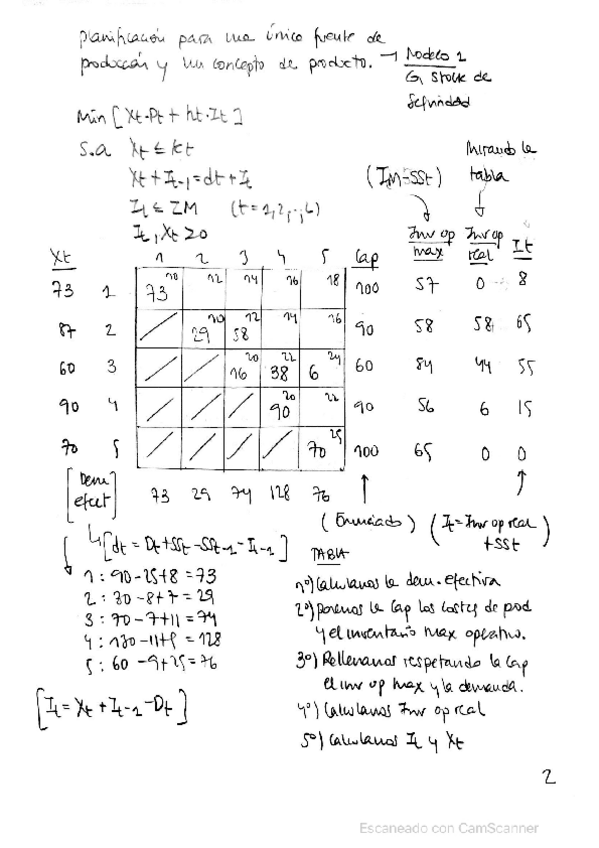 planificación para una único frente de
producción y un concepto de producto. → Modelo 1
↳ Stock de
Seguridad
Min [Xt·Pt + ht·It]
S.a Xt ≤ Kt
Xt + It-1 = dt + It
It ≤ IM (t=1,2,..,6)
It, Xt ≥ 0
(IM-SSt)
Mirando la
tabla
Xt 1 2 3 4 5 Cap Inv op max Inv op real It
73 1 73 10 12 14 16 18 100 57 0 8
87 2 29 10 58 12 14 16 90 58 58 65
60 3 16 20 38 22 6 24 60 84 44 55
90 4 90 20 22 90 56 6 15
70 5 70 25 100 65 0 0
[Dem efect] 73 29 74 128 76
(Enunciado) (It = Inv op real + SSt)
↳ [dt = Dt + SSt - SSt-1 - It-1]
1: 90-25+8 = 73
2: 30-8+7 = 29
3: 70-7+11 = 74
4: 130-11+9 = 128
5: 60-9+25 = 76
[It = Xt + It-1 - Dt]
TABLA
1º) Calculamos la dem. efectiva
2º) ponemos la Cap los costes de prod
y el inventario max operativo.
3º) Rellenamos respetando la cap
el inv op max y la demanda.
4º) Calculamos Inv op real
5º) Calculamos It y Xt
2
Escaneado con CamScanner